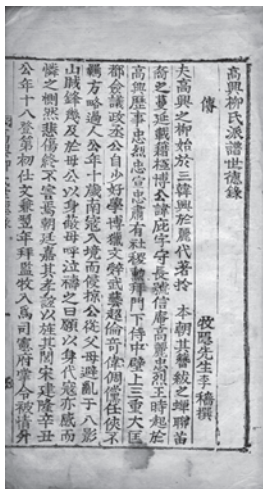 高興柳氏派譜世德錄
傳
牧隱先生李穡撰
夫高興之柳始於三韓興於麗代著於 本朝其簪紱之蟬聯苗
裔之蔓延載籍極博公諱庇字守長號信庵高麗忠烈王時起於
高興歷事忠烈忠宣忠肅有社稷勳拜門下侍中壁上三重大匡
都僉議政丞公自少好學博獵文辭武藝超倫奇偉倜儻任俠不
羈方略過人公年十歲南寇入境而侵掠公從父母避亂于八影
山賊鋒幾及於母公以身蔽母呼泣禱之曰願以身代寇亦感而
憐之惻然悲傷終不害焉朝廷嘉其孝諡以旌其閭宋建隆辛丑
公年十八登第初仕文翌年拜監牧入爲司憲府掌令被情分